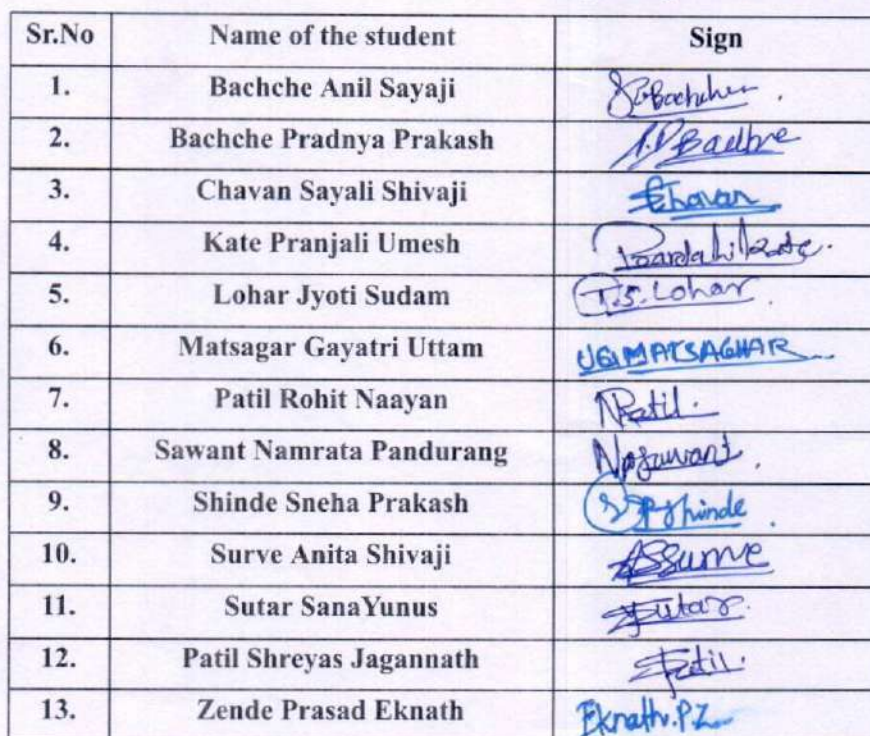 Sr.No Name of the student Sign
1. Bachche Anil Sayaji
2. Bachche Pradnya Prakash
3. Chavan Sayali Shivaji Chavan
4. Kate Pranjali Umesh
5. Lohar Jyoti Sudam T.S. Lohar
6. Matsagar Gayatri Uttam UGMATSAGHAR
7. Patil Rohit Naayan NPatil.
8. Sawant Namrata Pandurang NpSawant.
9. Shinde Sneha Prakash Shinde
10. Surve Anita Shivaji ASSurve
11. Sutar SanaYunus Sutar.
12. Patil Shreyas Jagannath Patil.
13. Zende Prasad Eknath Eknath.P.Z